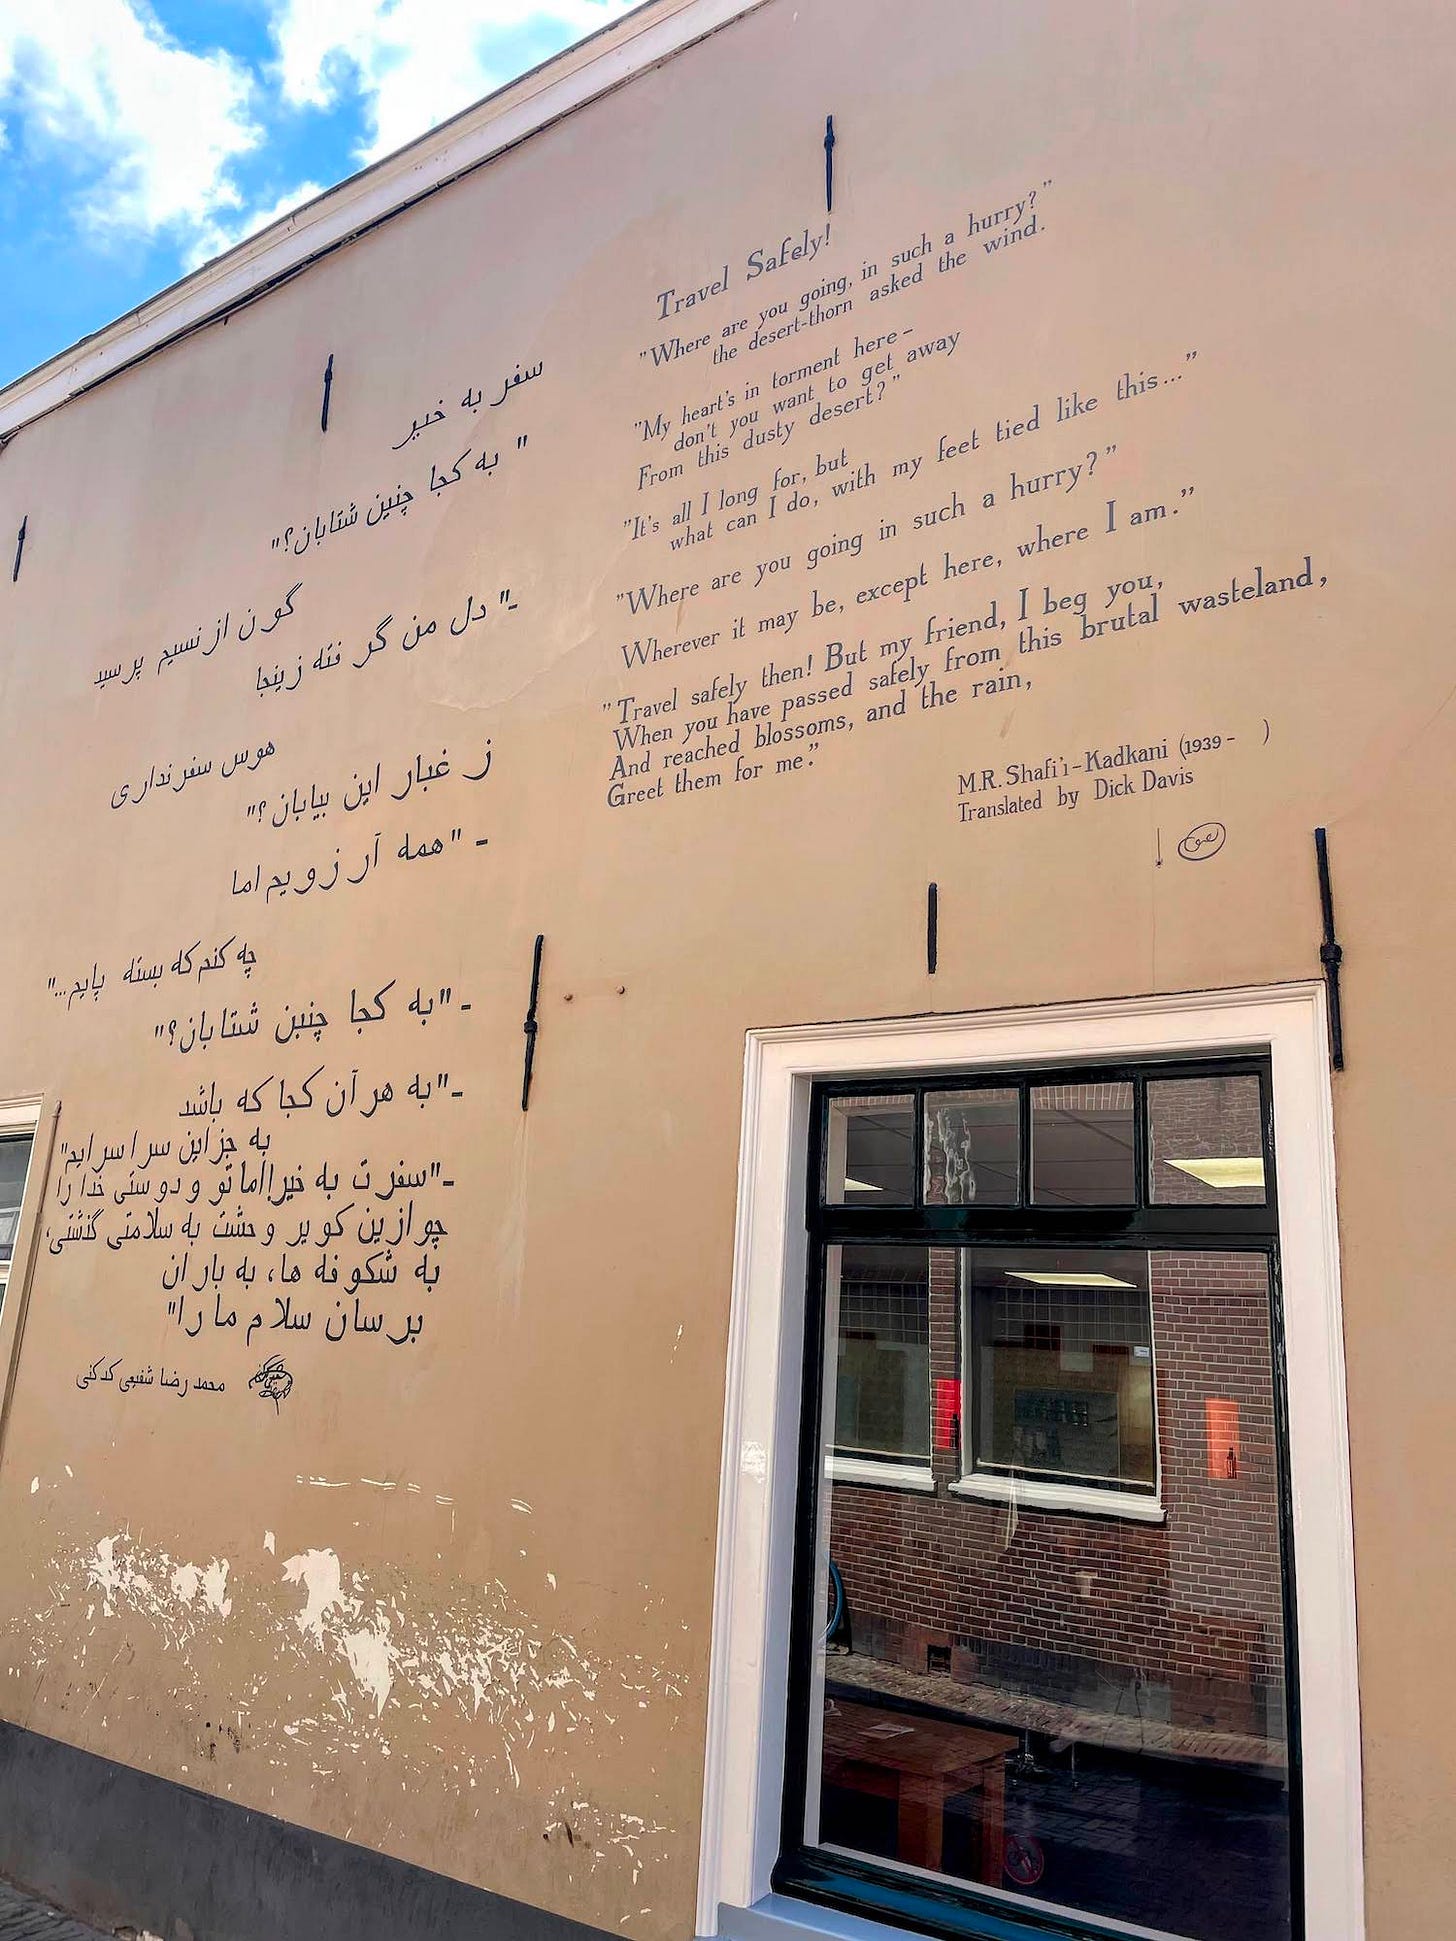 سفر به خیر
" به کجا چنین شتابان؟"
گون از نسیم پرسید
-" دل من گرفته زینجا
هوس سفر نداری
ز غبار این بیابان؟"
- "همه آرزویم اما
چه کنم که بسته پایم..."
-"به کجا چنین شتابان؟"
-"به هر آن کجا که باشد
به جز این سرا سرایم"
-"سفرت به خیر!اما تو و دوستی خدا را
چو ازین کویر وحشت به سلامتی گذشتی،
به شکوفه ها، به باران
برسان سلام ما را"
محمد رضا شفیعی کدکنی
Travel Safely!
"Where are you going, in such a hurry?"
the desert-thorn asked the wind.
"My heart's in torment here –
don't you want to get away
From this dusty desert?"
"It's all I long for, but
what can I do, with my feet tied like this..."
"Where are you going in such a hurry?"
Wherever it may be, except here, where I am."
"Travel safely then! But my friend, I beg you,
When you have passed safely from this brutal wasteland,
And reached blossoms, and the rain,
Greet them for me."
M.R. Shafi'i-Kadkani (1939- )
Translated by Dick Davis